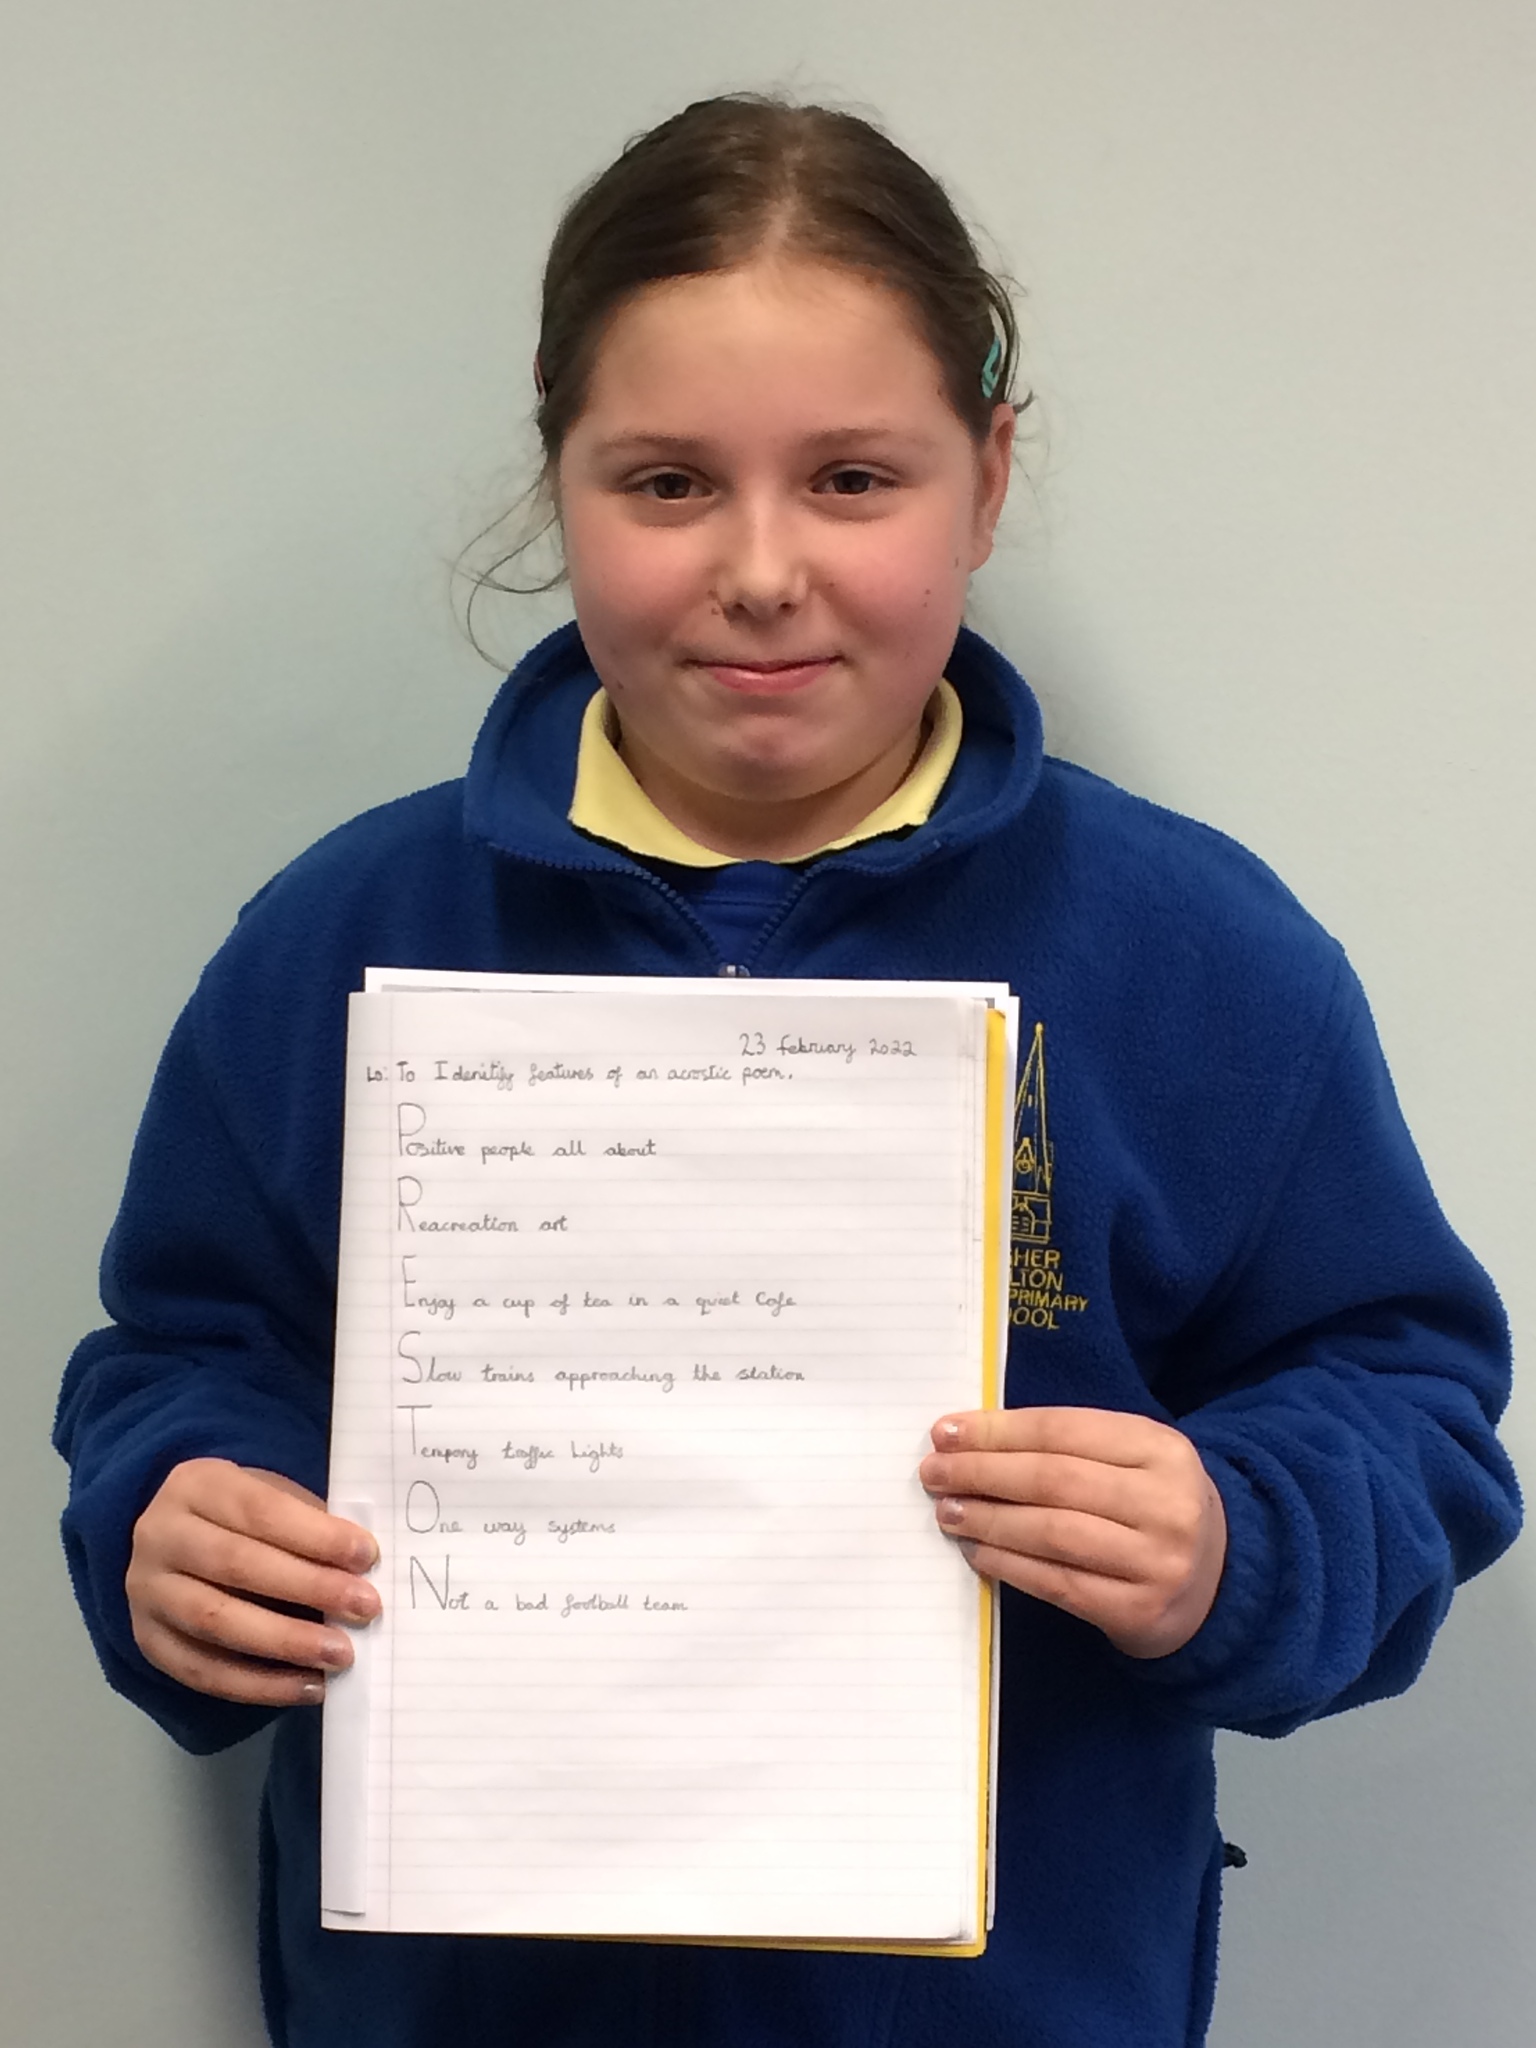 23 february 2022
Lo: To Idenitify features of an acrostic poem.
Positive people all about
Reacreation art
Enjoy a cup of tea in a quiet Cafe
Slow trains approaching the station
Tempory traffic lights
One way systems
Not a bad football team
GHER
LTON
PRIMARY
OOL